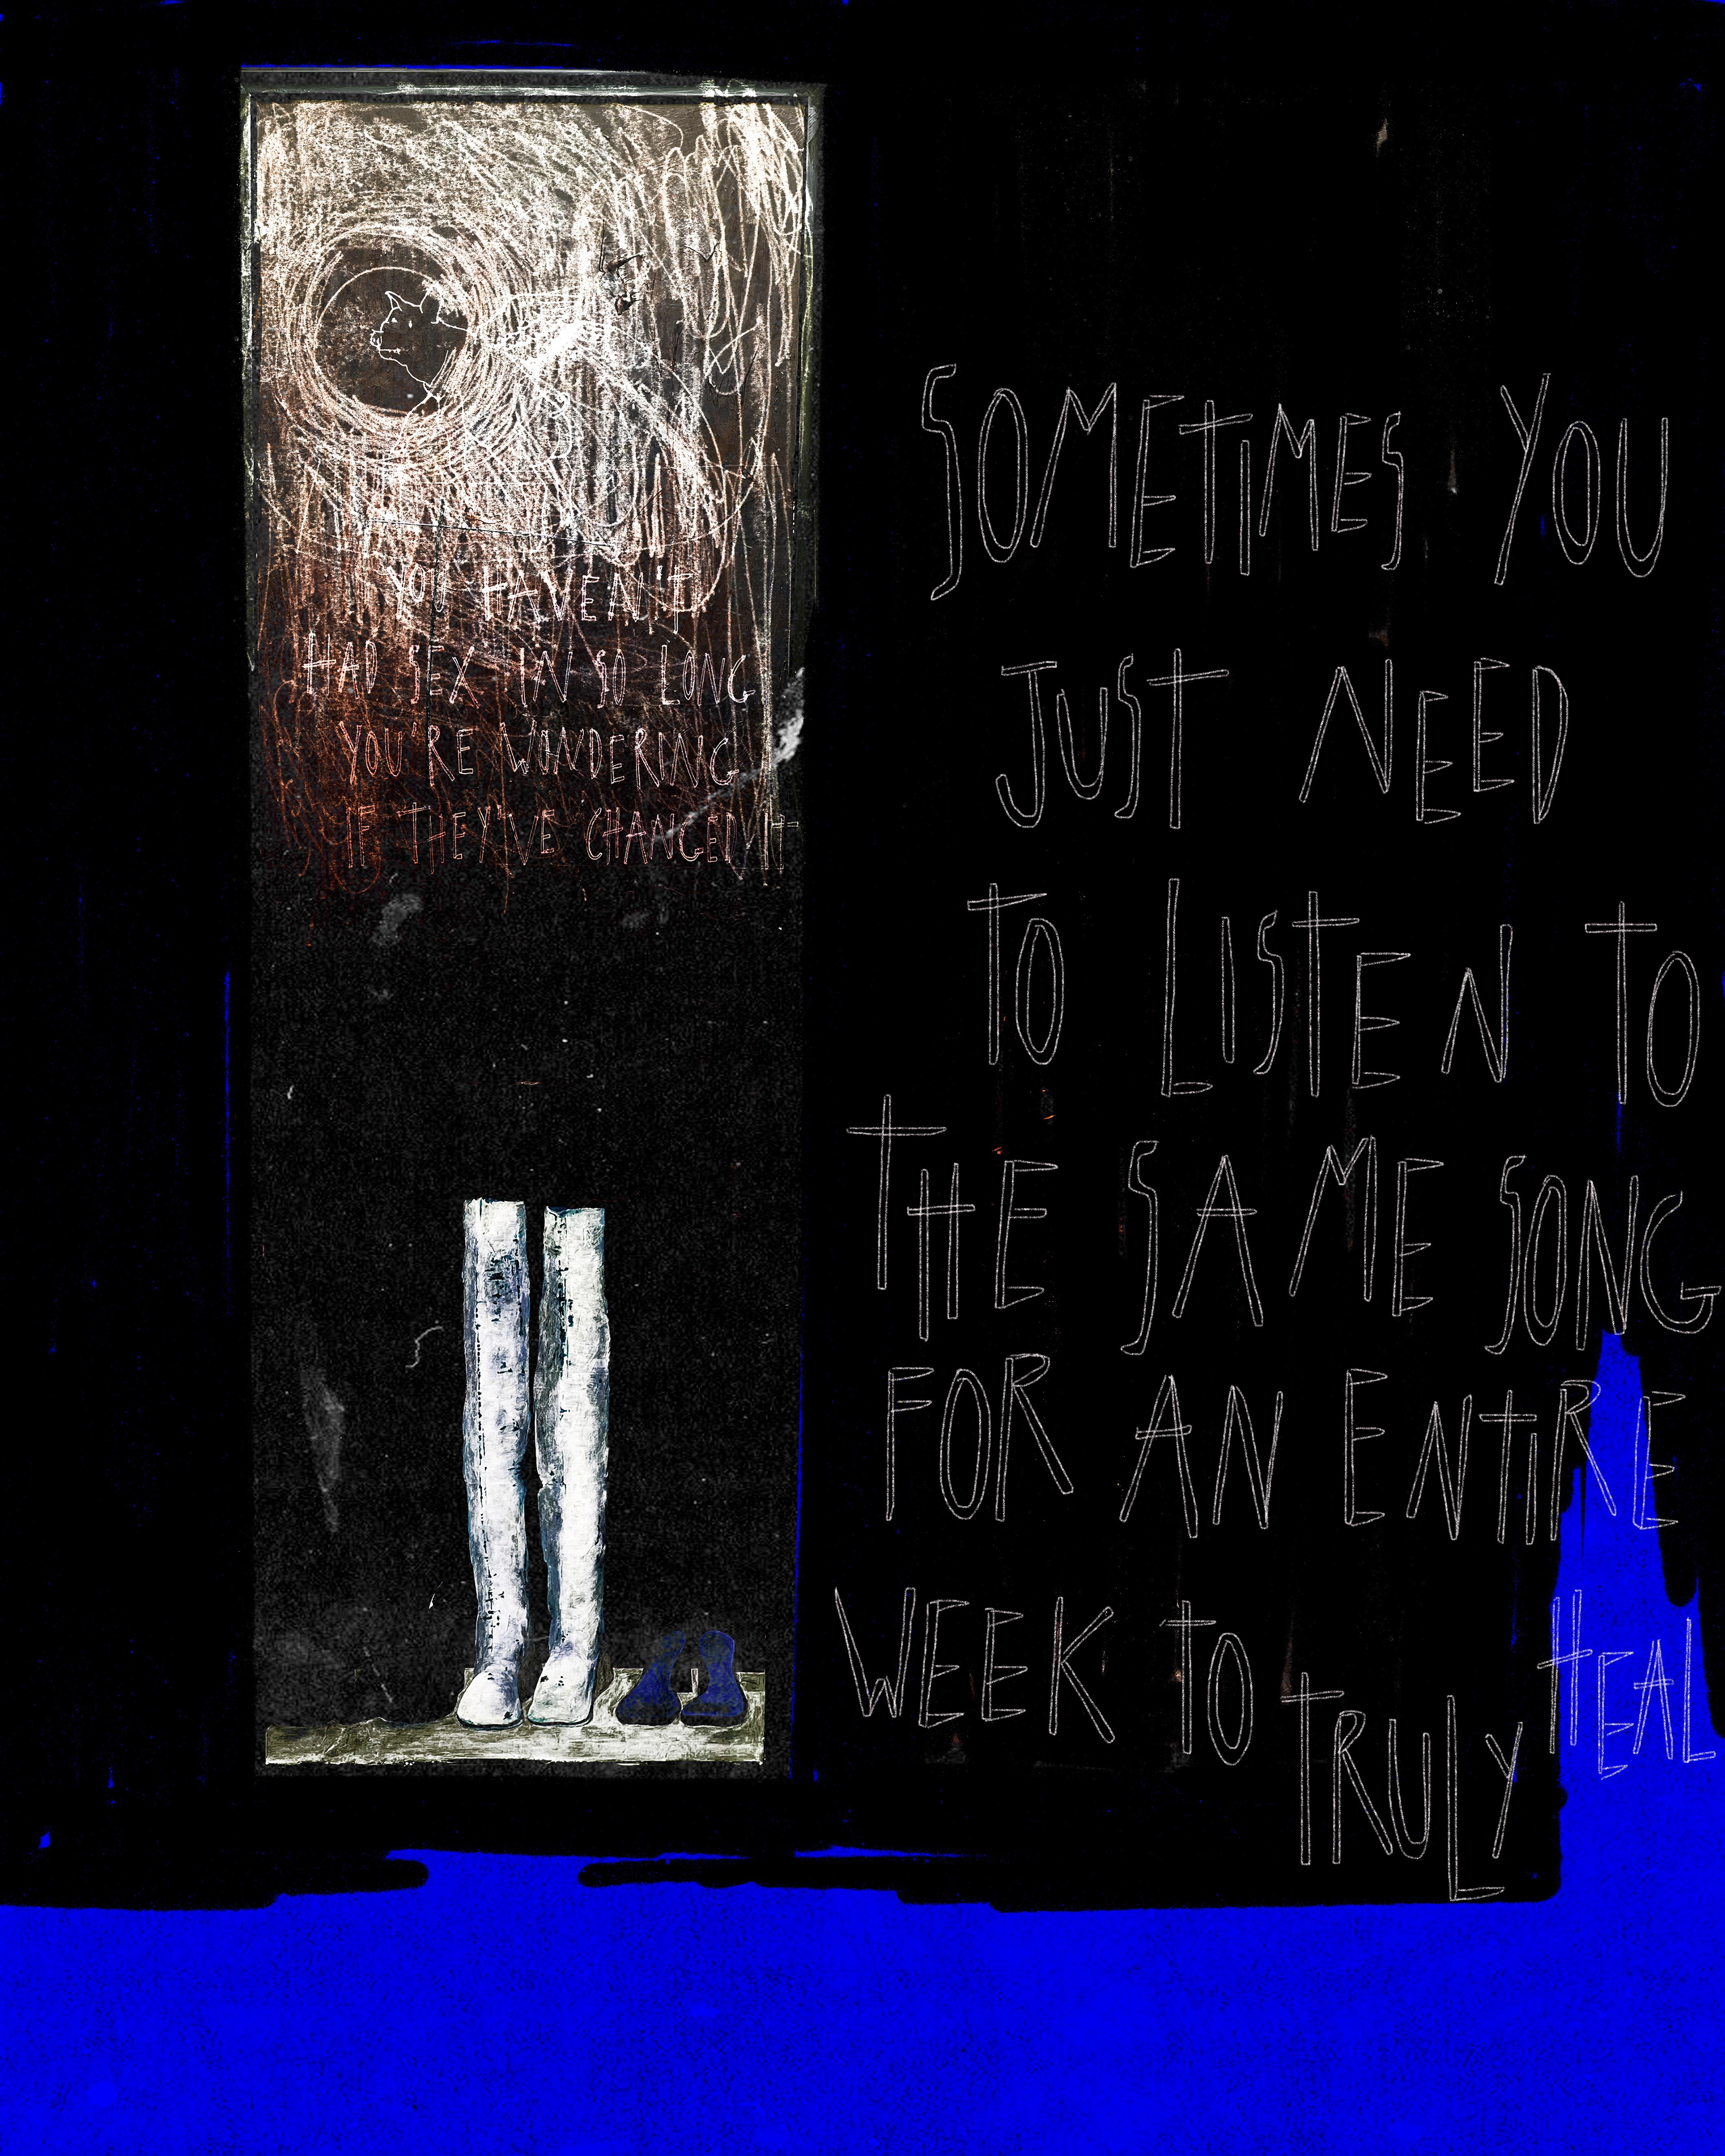 YOU HAVEN'T
HAD SEX IN SO LONG
YOU'RE WONDERING
IF THEY'VE CHANGED IT
SOMETIMES YOU
JUST NEED
TO LISTEN TO
THE SAME SONG
FOR AN ENTIRE
WEEK TO TRULY HEAL